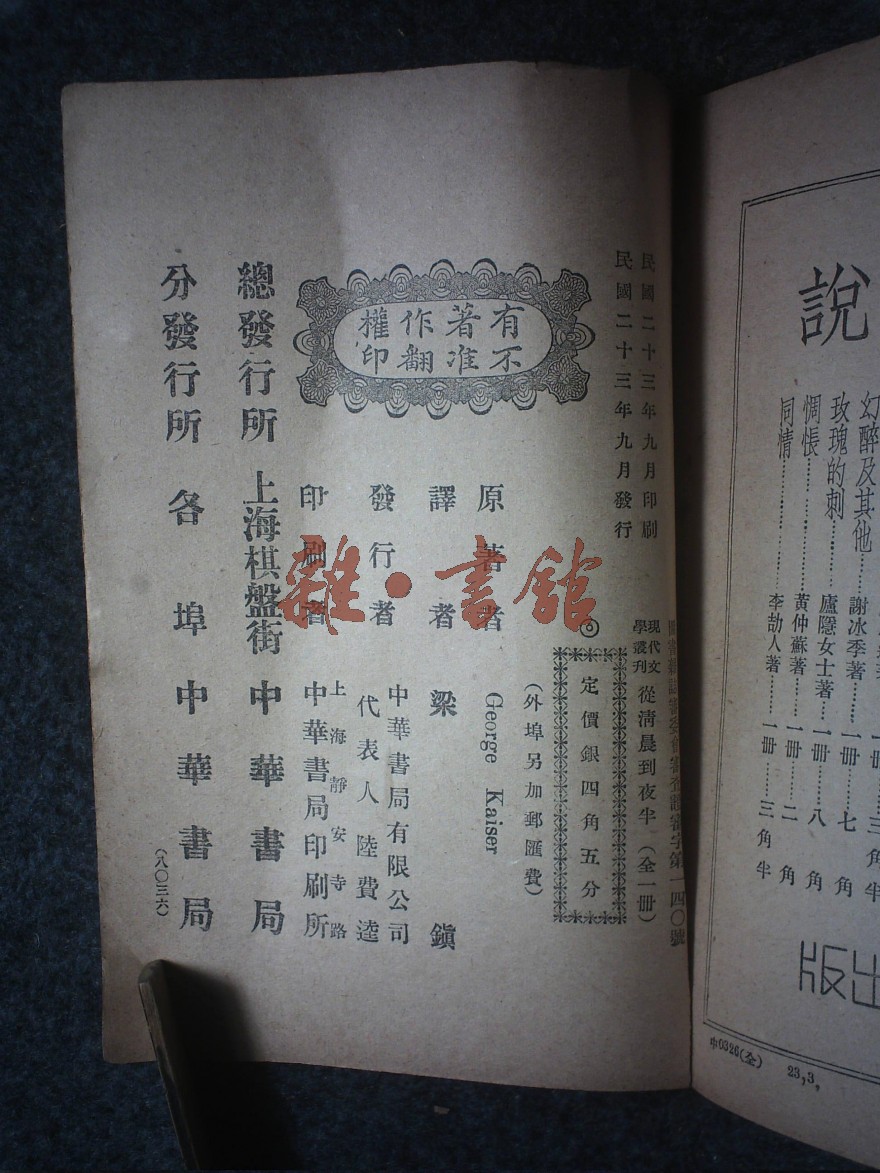 民國二十三年九月印刷
民國二十三年九月發行
審字第一四〇號
現代文學叢刊 從清晨到夜半(全一册)
定價銀四角五分
(外埠另加郵匯費)
有著作權
不准翻印
原著者 George Kaiser
譯者 梁鎮
發行者 中華書局有限公司
代表人 陸費逵
印刷者 上海靜安寺路
中華書局印刷所
總發行所 上海棋盤街 中華書局
分發行所 各埠中華書局
(八〇三六)
雜·書館
說
幻醉及其他……謝冰季著…一册……七角
玫瑰的刺……廬隱女士著…一册……八角
惆悵……黃仲蘇著…一册……二角
同情……李劼人著…一册……三角半
出版
中0326(全) 23,3,